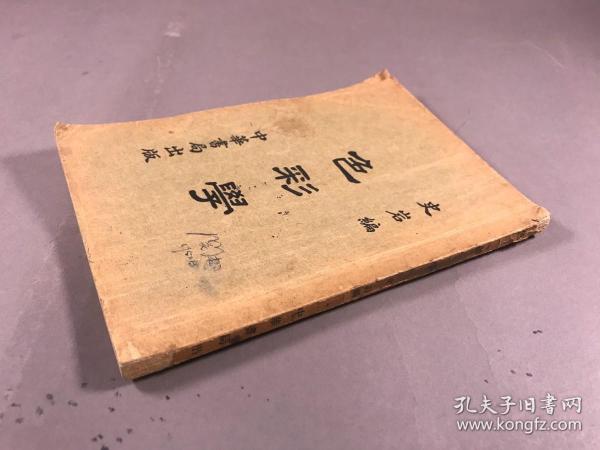 史岩編
色彩學
中華書局出版
孔夫子旧書网
www.kongfz.com